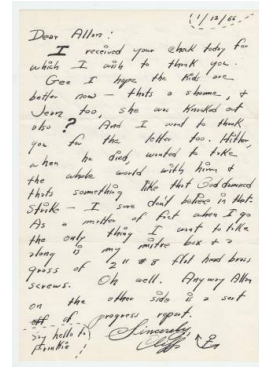 (1/12/66
Dear Allan:
I received your check today for
which I wish to thank you.
Gee I hope the kids are
better now — thats a shame, &
Jean too, she was knocked out
also? And I want to thank
you for the letter too. Hitler,
when he died, wanted to take
the whole world with him &
thats something like that God damned
Strike — I sure don't believe in that.
As a matter of fact when I go
the only thing I want to take
along is my mitre box & a
gross of 2" # 8 flat head brass
screws. Oh well. Anyway Allan
on the other side is a sort
of progress report.
Say hello to
Frankie!
Sincerely,
Cliff